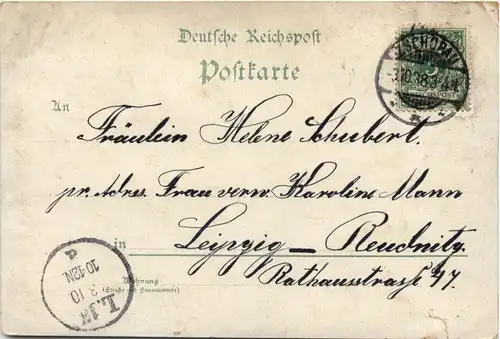 Deutsche Reichspost
Postkarte
ZSCHOPAU
3.10.98
An
Fräulein Helene Schubert.
pr. Adres. Frau verw. Karoline Mann
in Leipzig – Reudnitz.
Wohnung
(Straße und Hausnummer)
Rathausstrasse 47.
3 10
10-12N